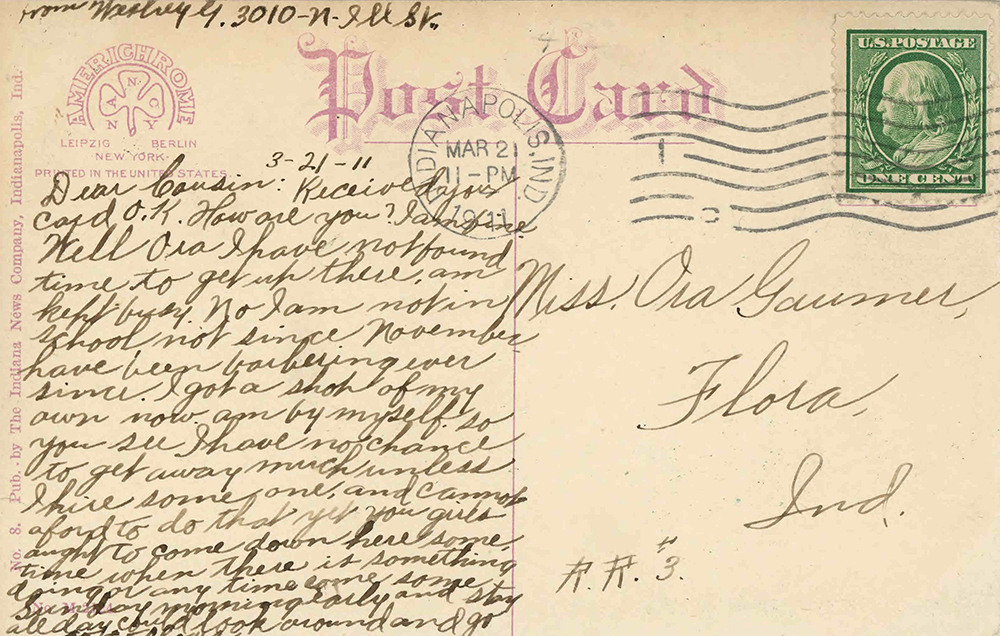 from Weshey G. 3010-N-Ill St.
AMERICHROME
A N C O
N Y
LEIPZIG BERLIN
NEW YORK
PRINTED IN THE UNITED STATES.
Post Card
INDIANAPOLIS, IND.
MAR 21
11-PM
1911
U.S.POSTAGE
ONE CENT
No. 8. Pub. by The Indiana News Company, Indianapolis, Ind.
3-21-11
Dear Cousin: Received your
card O.K. How are you? I am fine
Well Ora I have not found
time to get up there, am
kept busy. No I am not in
school not since November
have been barbering ever
since. I got a shop of my
own now am by myself. so
you see I have no chance
to get away much unless
I hire some one, and cannot
aford to do that yet you girls
aught to come down here some
time when there is something
doing or any time come some
Sunday morning early and stay
all day could look around and go
Miss. Ora Gaumer,
Flora,
Ind.
R. R. "3.